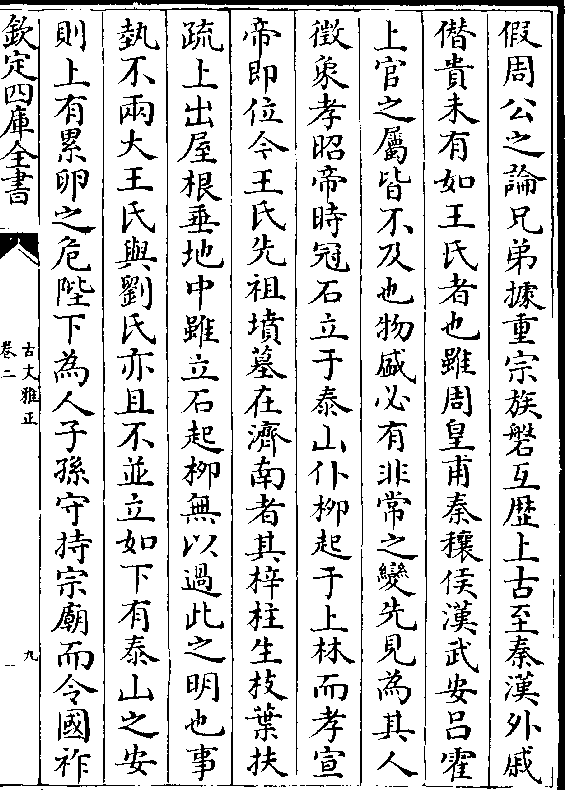 假周公之論兄弟據重宗族磐互歷上古至秦漢外戚
僭貴未有如王氏者也雖周皇甫秦穰侯漢武安呂霍
上官之屬皆不及也物盛必有非常之變先見為其人
徵象孝昭帝時冠石立于泰山仆柳起于上林而孝宣
帝即位今王氏先祖墳墓在濟南者其梓柱生枝葉扶
疏上出屋根垂地中雖立石起柳無以過此之明也事
埶不兩大王氏與劉氏亦且不並立如下有泰山之安
則上有累卵之危陛下為人子孫守持宗廟而令國祚
欽定四庫全書
古文雅正
卷二
九